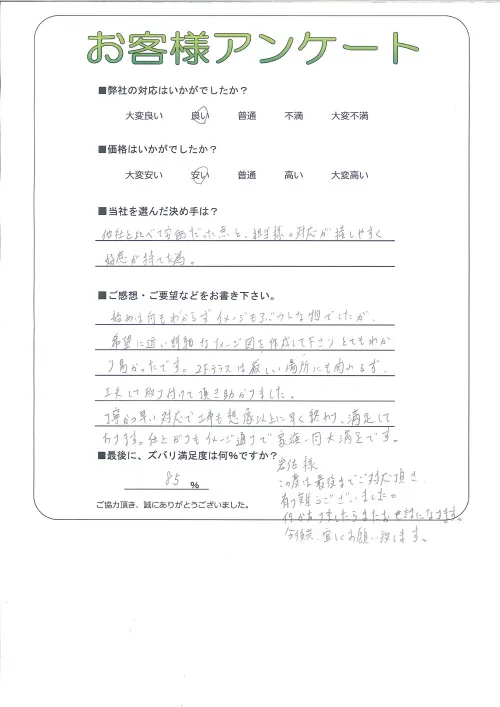 お客様アンケート
■弊社の対応はいかがでしたか？
大変良い 良い 普通 不満 大変不満
■価格はいかがでしたか？
大変安い 安い 普通 高い 大変高い
■当社を選んだ決め手は？
他社と比べて安価だった点と、担当様の対応が接しやすく
好感が持てた為。
■ご感想・ご要望などをお書き下さい。
始めは何もわからずイメージもざっくりな物でしたが、
希望に近い詳細なイメージ図を作成して下さりとてもわか
り易かったです。2Fテラスは厳しい場所にも関わらず、
工夫して取り付けて頂き助かりました。
丁寧かつ早い対応で工事も想像以上に早く終わり、満足して
おります。仕上がりもイメージ通りで家族一同大満足です。
■最後に、ズバリ満足度は何％ですか？
85 %
ご協力頂き、誠にありがとうございました。
岩佐様
この度は最後までご対応頂き、
有り難うございました。
何かありましたらまたお世話になります。
今後共、宜しくお願い致します。